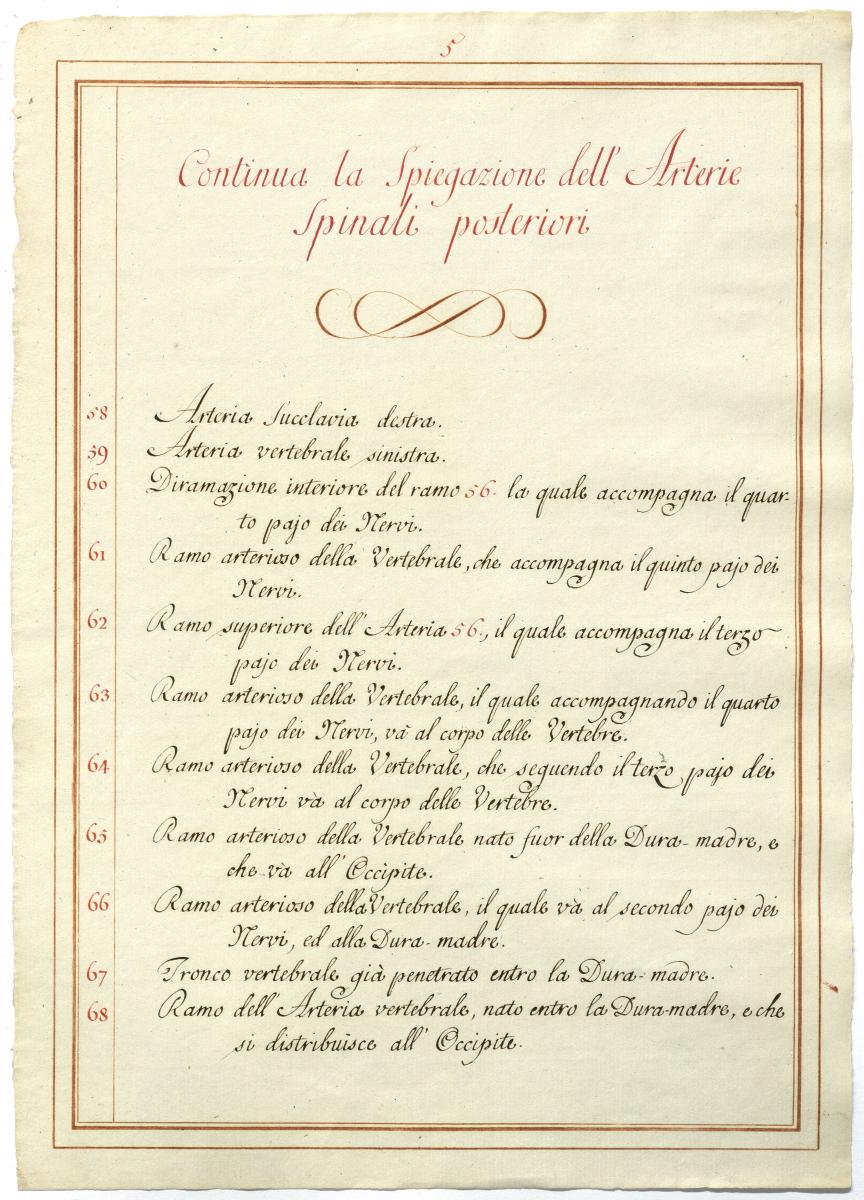 5
Continua la Spiegazione dell' Arterie
Spinali posteriori
58 Arteria Succlavia destra.
59 Arteria vertebrale sinistra.
60 Diramazione interiore del ramo 56. la quale accompagna il quar-
to pajo dei Nervi.
61 Ramo arterioso della Vertebrale, che accompagna il quinto pajo dei
Nervi.
62 Ramo superiore dell' Arteria 56., il quale accompagna il terzo
pajo dei Nervi.
63 Ramo arterioso della Vertebrale, il quale accompagnando il quarto
pajo dei Nervi, và al corpo delle Vertebre.
64 Ramo arterioso della Vertebrale, che seguendo il terzo pajo dei
Nervi và al corpo delle Vertebre.
65 Ramo arterioso della Vertebrale nato fuor della Dura-madre, e
che và all' Occipite.
66 Ramo arterioso della Vertebrale, il quale và al secondo pajo dei
Nervi, ed alla Dura-madre.
67 Tronco vertebrale già penetrato entro la Dura-madre.
68 Ramo dell' Arteria vertebrale, nato entro la Dura-madre, e che
si distribuisce all' Occipite.